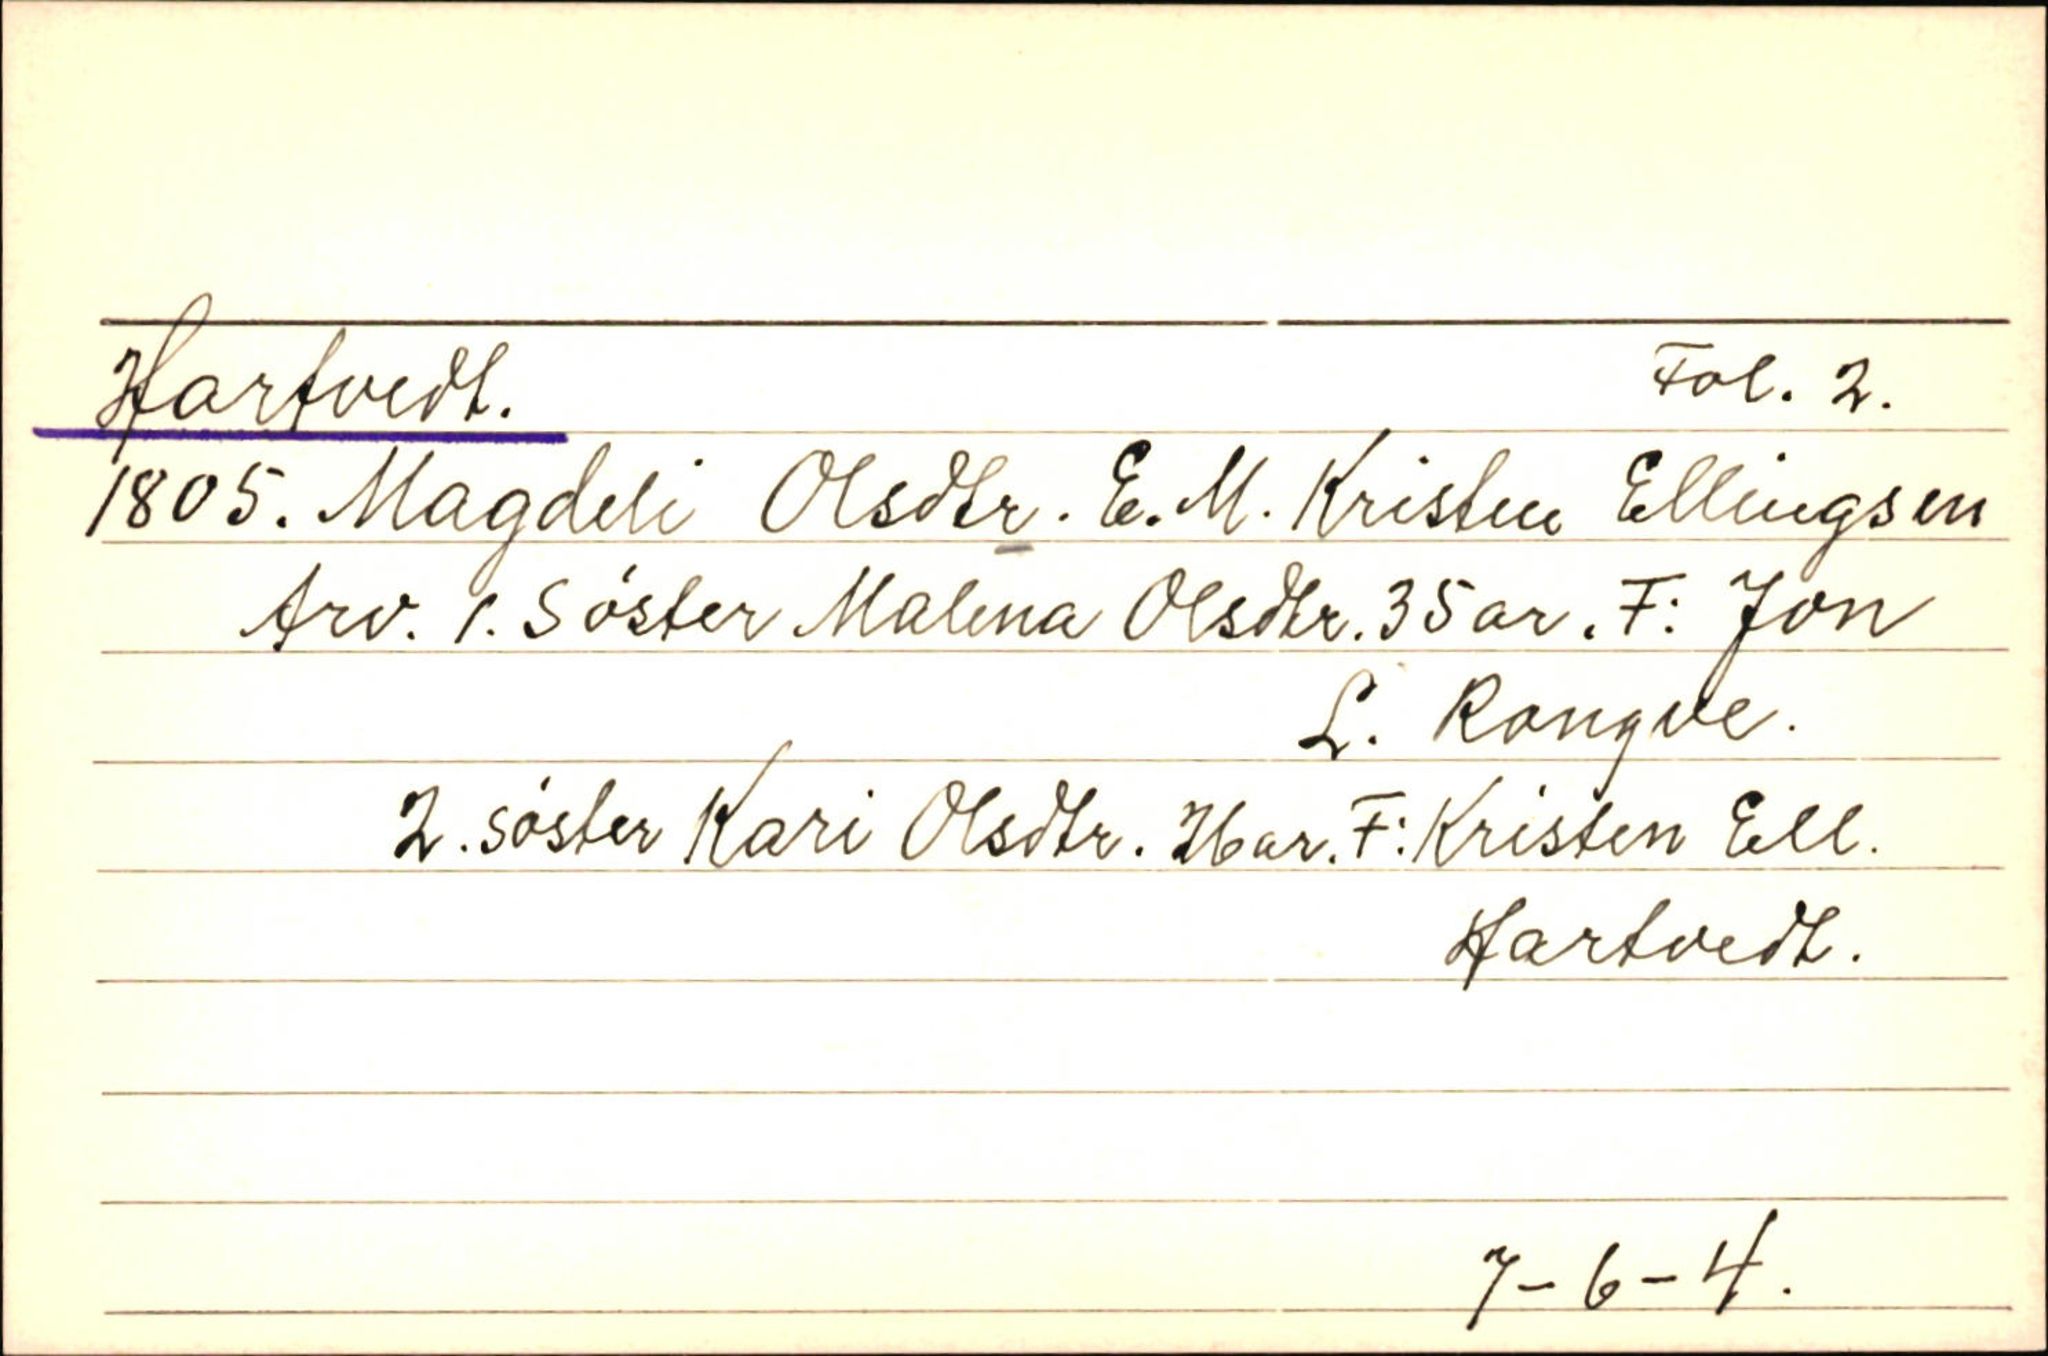 Hartvedt. Fol. 2.
1805. Magdeli Olsdtr. E. M. Kristen Ellingsen
Arv. 1. Söster Malena Olsdtr. 35 ar. F: Jon
L. Rongve.
2. söster Kari Olsdtr. 26 ar. F: Kristen Ell.
Hartvedt.
7-6-4.